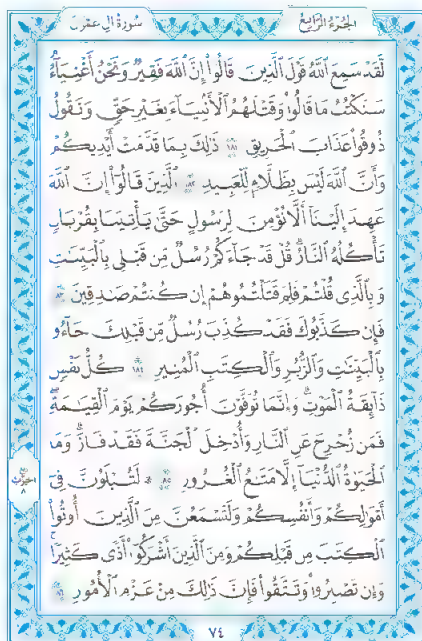 سُورَةُ آلِ عِمْرَان
الجُزْءُ الرَّابِعُ
لَّقَدْ سَمِعَ اللَّهُ قَوْلَ الَّذِينَ قَالُوٓا۟ إِنَّ اللَّهَ فَقِيرٌ وَنَحْنُ أَغْنِيَآءُ
سَنَكْتُبُ مَا قَالُوا۟ وَقَتْلَهُمُ الْأَنۢبِيَآءَ بِغَيْرِ حَقٍّ وَنَقُولُ
ذُوقُوا۟ عَذَابَ الْحَرِيقِ ١٨١ ذَٰلِكَ بِمَا قَدَّمَتْ أَيْدِيكُمْ
وَأَنَّ اللَّهَ لَيْسَ بِظَلَّامٍ لِّلْعَبِيدِ ١٨٢ الَّذِينَ قَالُوٓا۟ إِنَّ اللَّهَ
عَهِدَ إِلَيْنَآ أَلَّا نُؤْمِنَ لِرَسُولٍ حَتَّىٰ يَأْتِيَنَا بِقُرْبَانٍ
تَأْكُلُهُ النَّارُ ۗ قُلْ قَدْ جَآءَكُمْ رُسُلٌ مِّن قَبْلِى بِالْبَيِّنَٰتِ
وَبِالَّذِى قُلْتُمْ فَلِمَ قَتَلْتُمُوهُمْ إِن كُنتُمْ صَٰدِقِينَ ١٨٣
فَإِن كَذَّبُوكَ فَقَدْ كُذِّبَ رُسُلٌ مِّن قَبْلِكَ جَآءُو
بِالْبَيِّنَٰتِ وَالزُّبُرِ وَالْكِتَٰبِ الْمُنِيرِ ١٨٤ كُلُّ نَفْسٍ
ذَآئِقَةُ الْمَوْتِ ۗ وَإِنَّمَا تُوَفَّوْنَ أُجُورَكُمْ يَوْمَ الْقِيَٰمَةِ ۖ
فَمَن زُحْزِحَ عَنِ النَّارِ وَأُدْخِلَ الْجَنَّةَ فَقَدْ فَازَ ۗ وَمَا
الْحَيَوٰةُ الدُّنْيَآ إِلَّا مَتَٰعُ الْغُرُورِ ١٨٥ لَتُبْلَوُنَّ فِىٓ
أَمْوَٰلِكُمْ وَأَنفُسِكُمْ وَلَتَسْمَعُنَّ مِنَ الَّذِينَ أُوتُوا۟
الْكِتَٰبَ مِن قَبْلِكُمْ وَمِنَ الَّذِينَ أَشْرَكُوٓا۟ أَذًى كَثِيرًا ۚ
وَإِن تَصْبِرُوا۟ وَتَتَّقُوا۟ فَإِنَّ ذَٰلِكَ مِنْ عَزْمِ الْأُمُورِ ١٨٦
الحزب
٨
٧٤